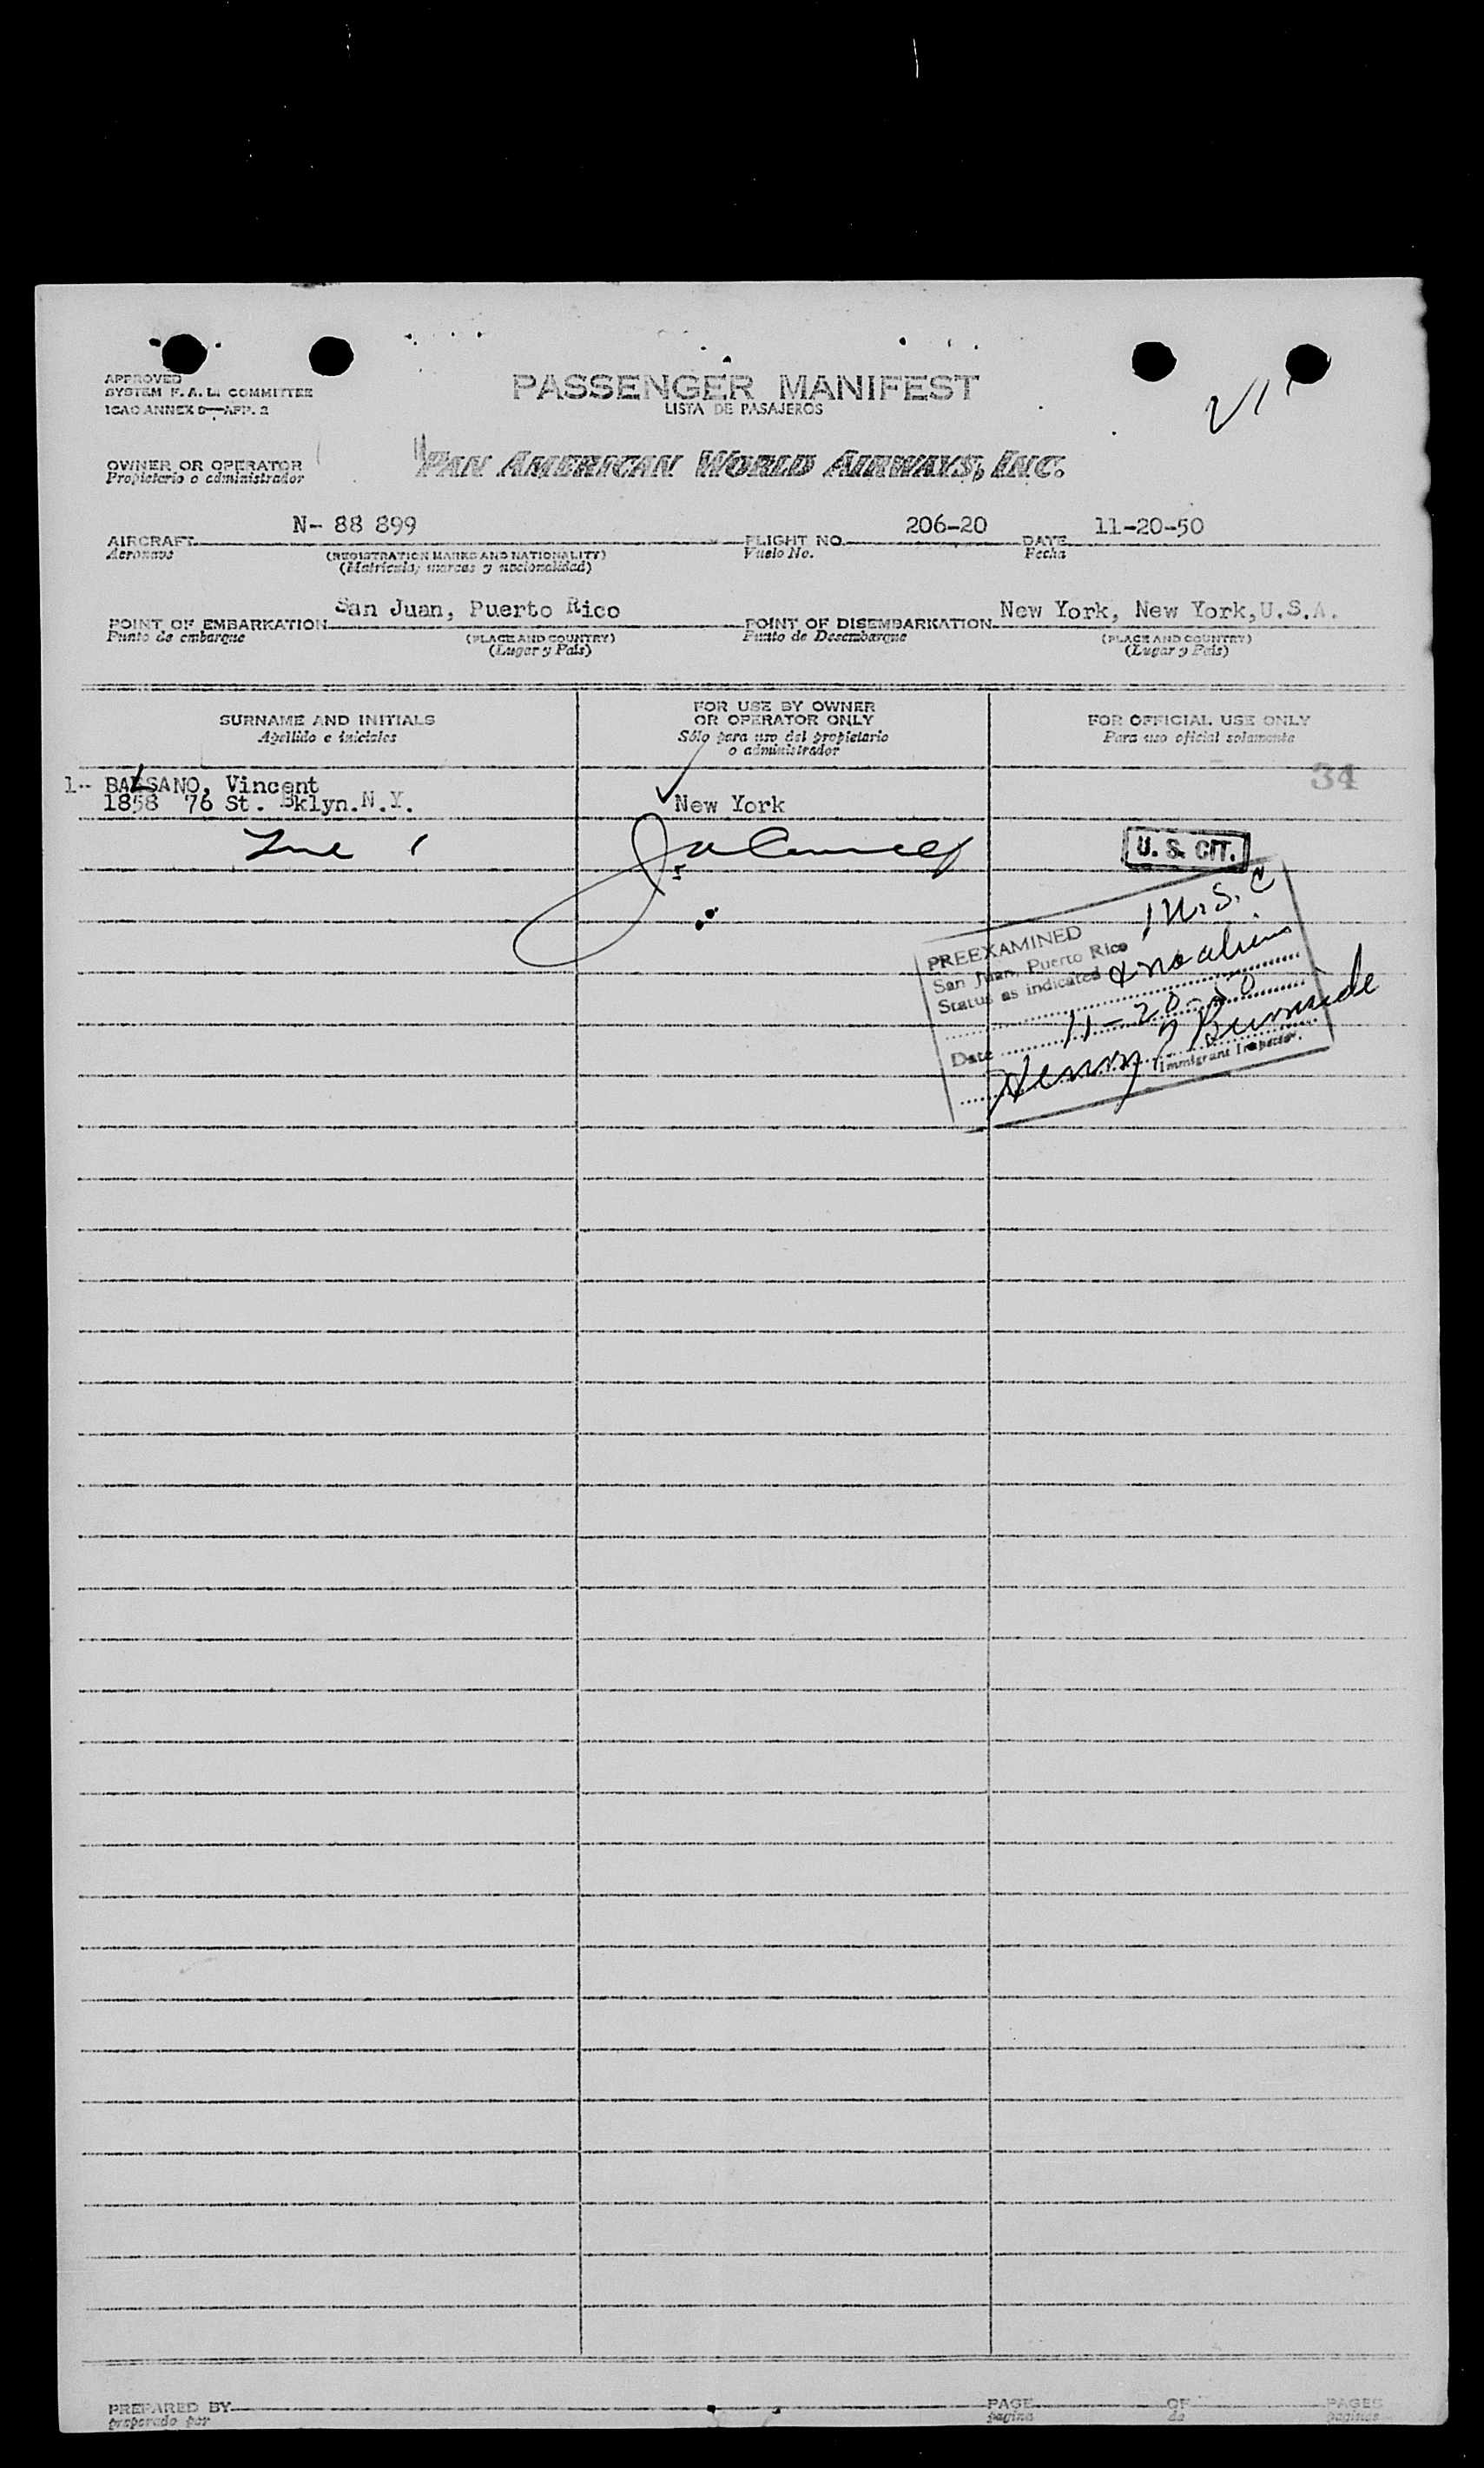 APPROVED
SYSTEM F. A. L. COMMITTEE
ICAO ANNEX 9—APP. 2
PASSENGER MANIFEST
LISTA DE PASAJEROS
OWNER OR OPERATOR
Propietario o administrador
PAN AMERICAN WORLD AIRWAYS, INC.
AIRCRAFT N- 88 899 FLIGHT NO. 206-20 DATE 11-20-50
Aeronave (REGISTRATION MARKS AND NATIONALITY) Vuelo No. Fecha
(Matricula, marcas y nacionalidad)
POINT OF EMBARKATION San Juan, Puerto Rico POINT OF DISEMBARKATION New York, New York, U.S.A.
Punto de embarque (PLACE AND COUNTRY) Punto de Desembarque (PLACE AND COUNTRY)
(Lugar y País) (Lugar y País)
SURNAME AND INITIALS
Apellido e iniciales
FOR USE BY OWNER
OR OPERATOR ONLY
Sólo para uso del propietario
o administrador
FOR OFFICIAL USE ONLY
Para uso oficial solamente
34
1- BALSANO, Vincent
1858 76 St. Bklyn. N.Y. New York
U. S. CIT.
1 U.S.C
PREEXAMINED
San Juan, Puerto Rico
Status as indicated & no aliens
Date 11-20-50
Henry Burnside
Immigrant Inspector.
PREPARED BY PAGE OF PAGES
preparado por pagina de paginas